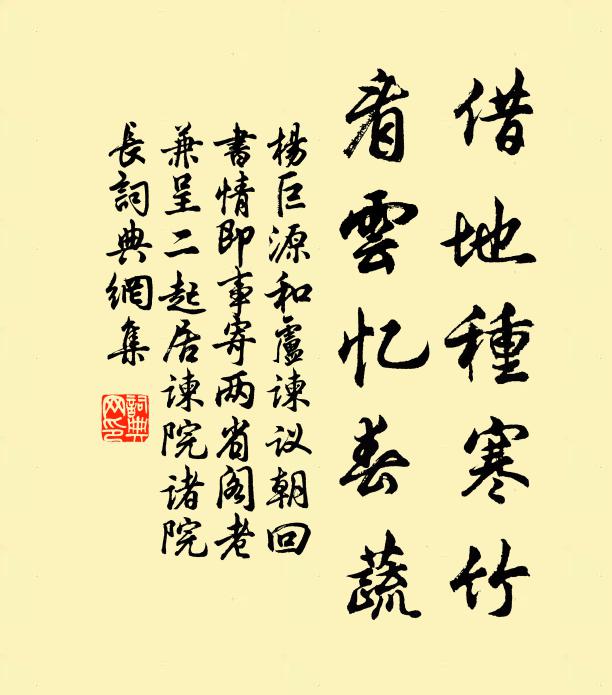 借地種寒竹
看雲忆春蔬
楊巨源和盧谏议朝回
書情即事寄两省阁老
兼呈二起居谏院诸院
長詞典網集
詞典
网印